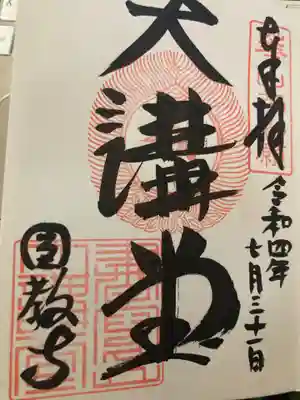 奉拝
令和四年
七月三十一日
大講堂
圓教寺